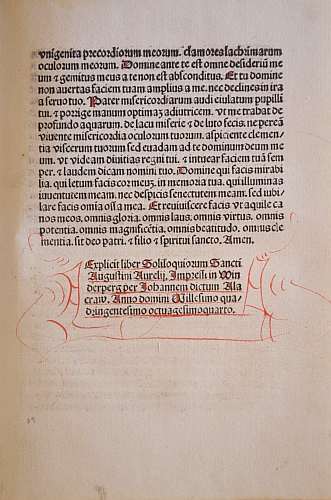 vnigenita precordiorum meorum. clamores lachrimarum
oculorum meorum. Domine ante te est omne desideriū me
um ⁊ gemitus meus a te non est absconditus. Et tu domine
non auertas faciem tuam amplius a me. nec declines in ira
a seruo tuo. Pater misericordiarum audi eiulatum pupilli
tui. ⁊ porrige manum optimaʒ adiutricem. vt me trahat de
profundo aquarum. de lacu miserie ⁊ de luto fecis. ne pereā
viuente misericordia oculorum tuorum. aspiciente clemen
tia viscerum tuorum sed euadam ad te dominum deum me
um. vt videam diuitias regni tui. ⁊ intuear faciem tuā sem
per. ⁊ laudem dicam nomini tuo. Domine qui facis mirabi
lia. qui letum facis cor meuʒ. in memoria tua. qui illuminas
iuuentutem meam. nec despicis senectutem meam. sed iubi
lare facis omia ossa mea. Et reuiuiscere facis vt aquile ca
nos meos. omnis gloria. omnis laus. omnis virtus. omnis
potentia. omnis magnificētia. omnis beatitudo. omnis cle
mentia. sit deo patri. ⁊ filio ⁊ spiritui sancto. Amen.
Explicit liber Soliloquiorum Sancti
Augustini Aurelij. Impressi in Win
derperg per Johannem dictum Alla
craw. Anno domini Millesimo qua
dringentesimo octuagesimoquarto.